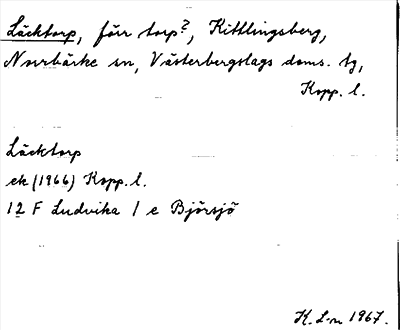 Läcktorp, förr torp?, Kittlingsberg,
Norrbärke sn, Västerbergslags doms. tg,
Kopp. l.
Läcktorp
ek (1966) Kopp. l.
12 F Ludvika 1 e Björsjö
K. L-m 1967.